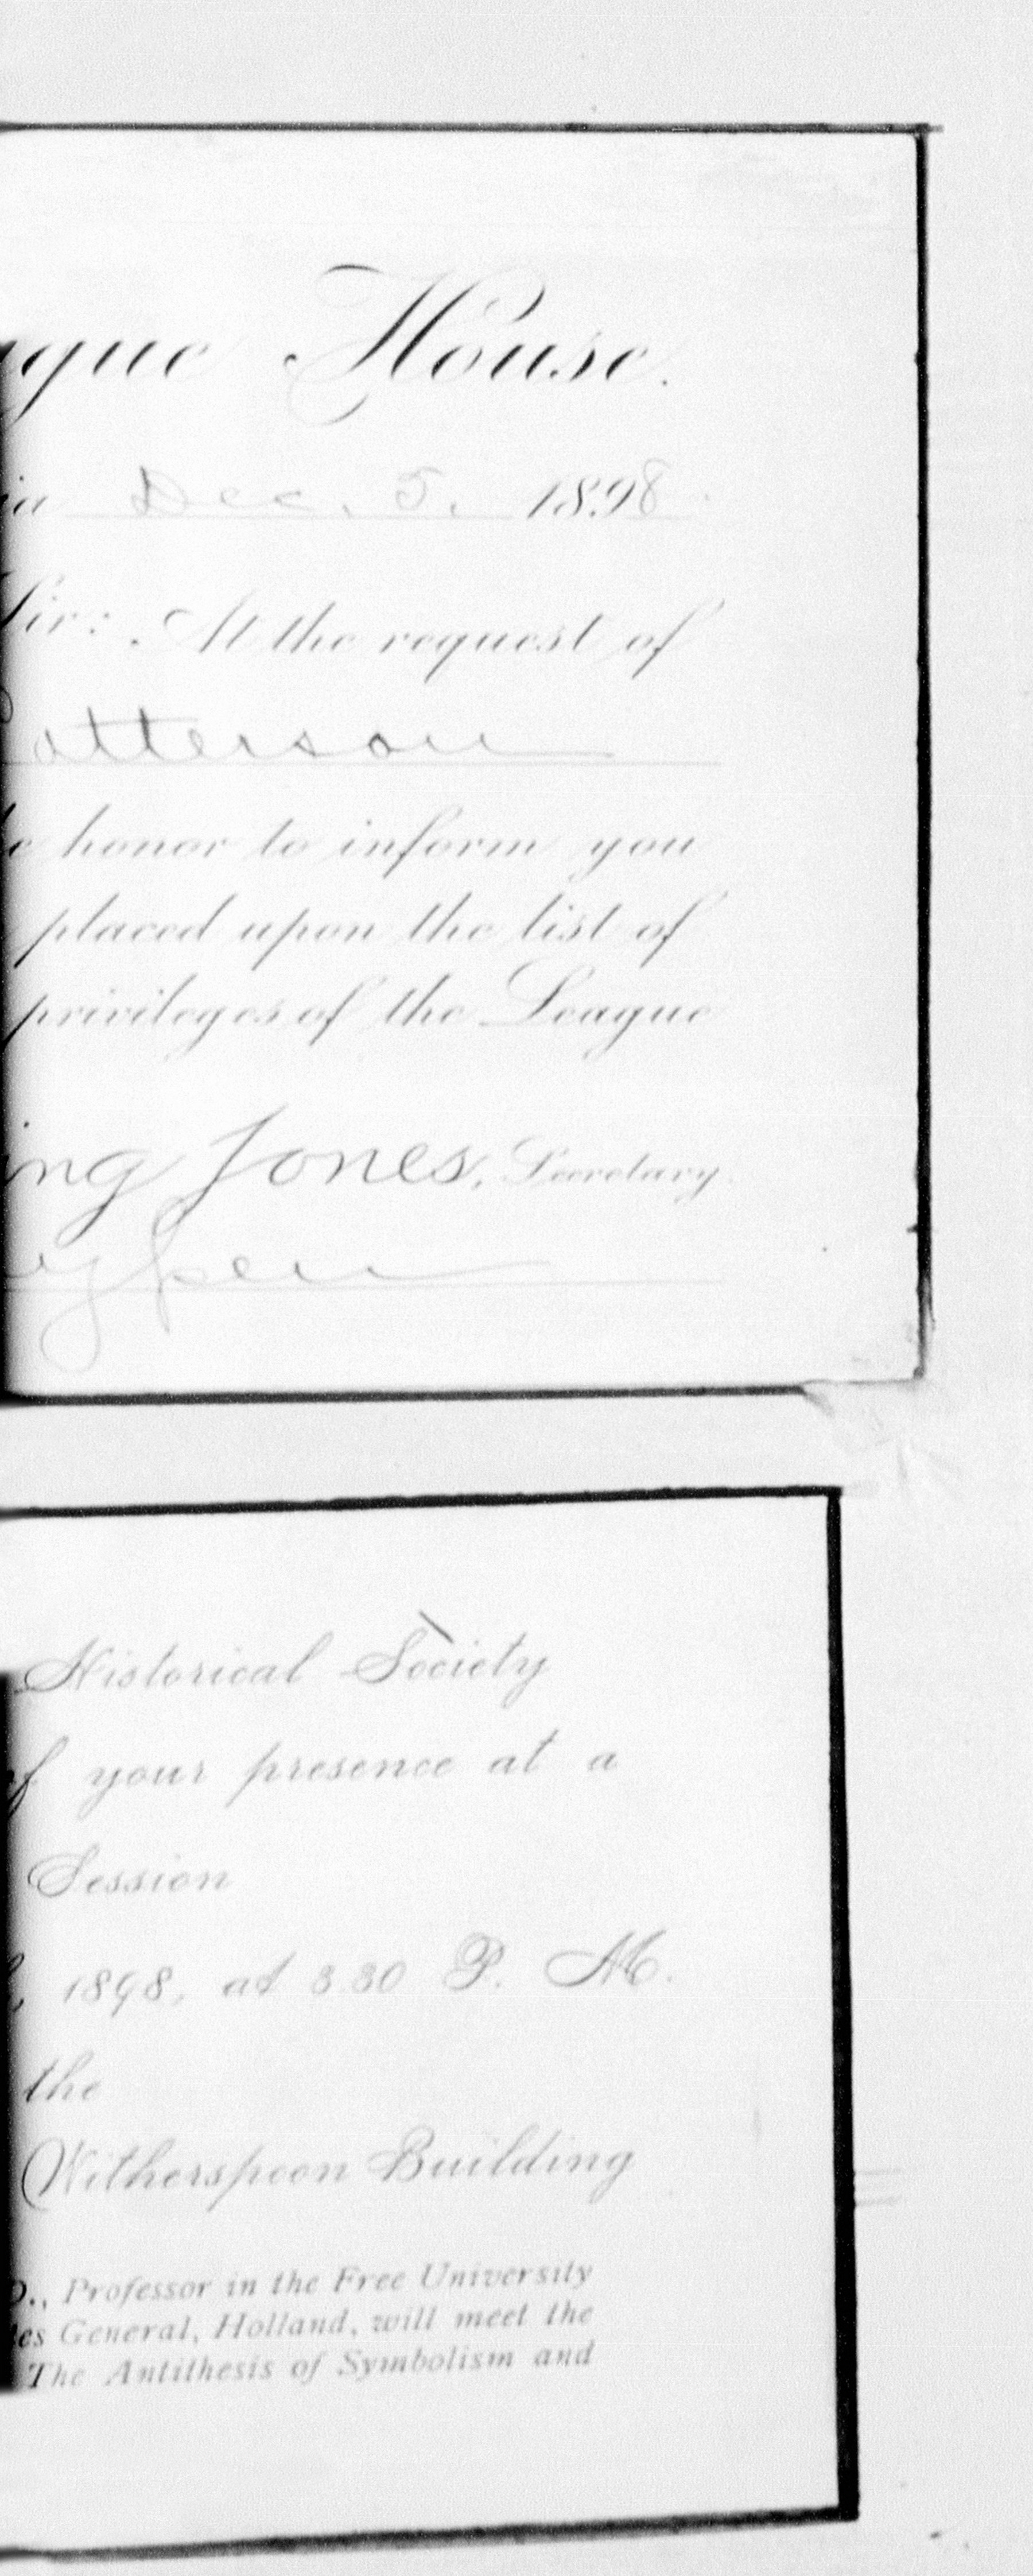 ague House.
ia Dec. 5. 1898.
Sir: At the request of
atterson
e honor to inform you
placed upon the list of
privileges of the League
ing Jones, Secretary.
uyper
Historical Society
of your presence at a
Session
1898, at 3.30 P. M.
the
Witherspoon Building
D., Professor in the Free University
tes General, Holland, will meet the
The Antithesis of Symbolism and